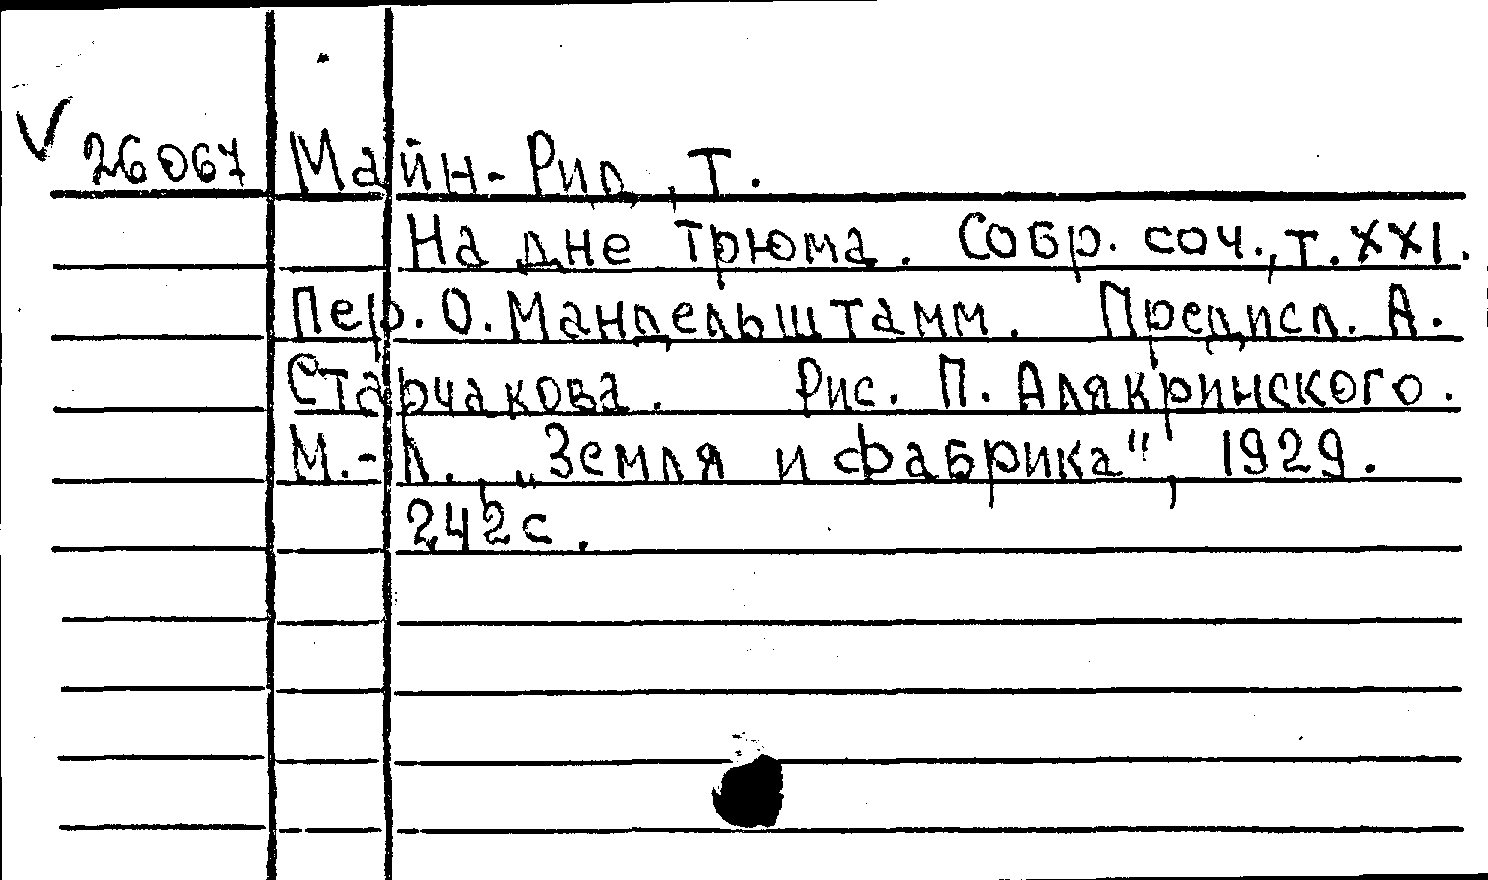 V 26067 Майн-Рид, Т.
На дне трюма. Собр. соч., т. XXI.
Пер. О. Мандельштамм. Предисл. А.
Старчакова. Рис. П. Алякринского.
М.-Л., „Земля и фабрика", 1929.
242 с.